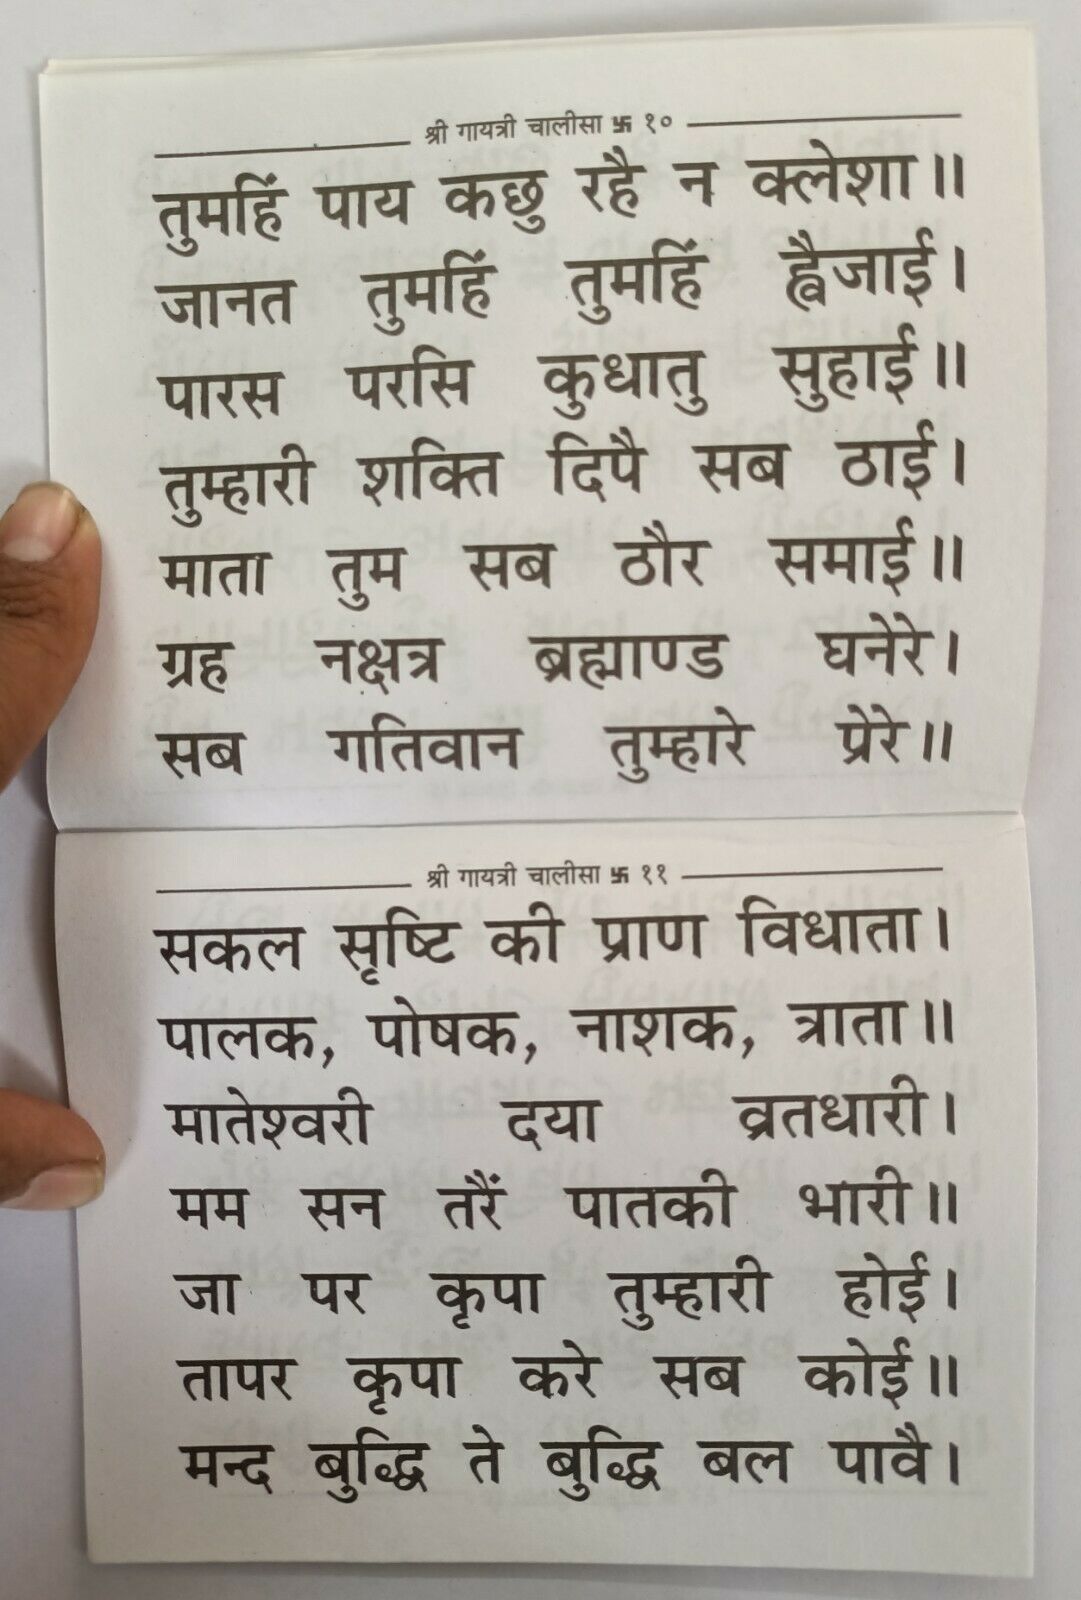 श्री गायत्री चालीसा 卐 १०
तुमहिं पाय कछु रहै न क्लेशा॥
जानत तुमहिं तुमहिं ह्वैजाई।
पारस परसि कुधातु सुहाई॥
तुम्हारी शक्ति दिपै सब ठाई।
माता तुम सब ठौर समाई॥
ग्रह नक्षत्र ब्रह्माण्ड घनेरे।
सब गतिवान तुम्हारे प्रेरे॥
श्री गायत्री चालीसा 卐 ११
सकल सृष्टि की प्राण विधाता।
पालक, पोषक, नाशक, त्राता॥
मातेश्वरी दया व्रतधारी।
मम सन तरैं पातकी भारी॥
जा पर कृपा तुम्हारी होई।
तापर कृपा करे सब कोई॥
मन्द बुद्धि ते बुद्धि बल पावै।